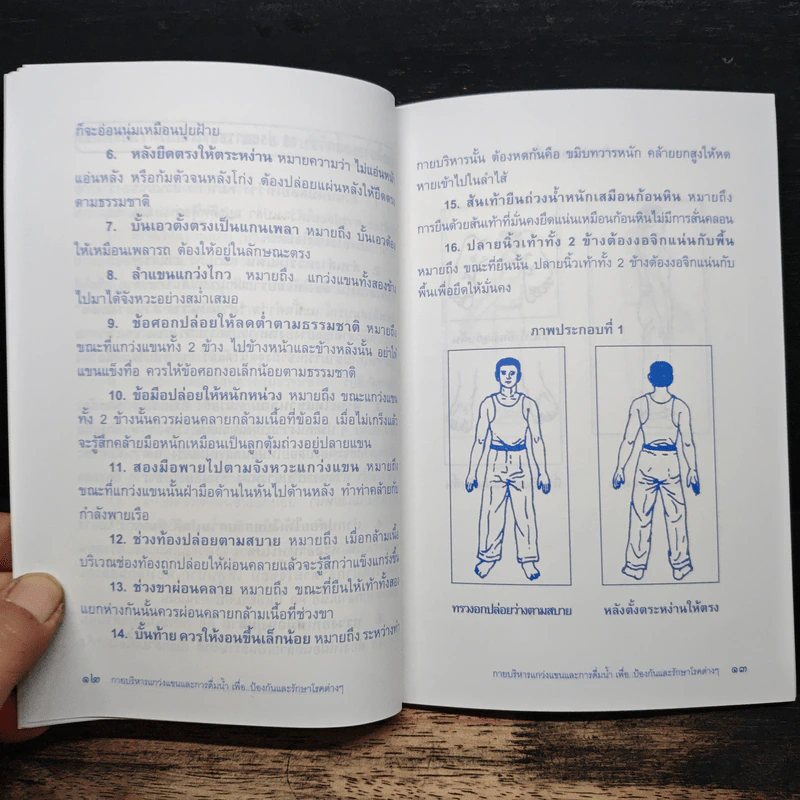 ก็จะอ่อนนุ่มเหมือนปุยฝ้าย
6. หลังยืดตรงให้ตระหง่าน หมายความว่า ไม่แอ่นหน้า
แอ่นหลัง หรือก้มตัวจนหลังโก่ง ต้องปล่อยแผ่นหลังให้ยืดตรง
ตามธรรมชาติ
7. บั้นเอวตั้งตรงเป็นแกนเพลา หมายถึง บั้นเอวต้อง
ให้เหมือนเพลารถ ต้องให้อยู่ในลักษณะตรง
8. ลำแขนแกว่งไกว หมายถึง แกว่งแขนทั้งสองข้าง
ไปมาได้จังหวะอย่างสม่ำเสมอ
9. ข้อศอกปล่อยให้ลดต่ำตามธรรมชาติ หมายถึง
ขณะที่แกว่งแขนทั้ง 2 ข้าง ไปข้างหน้าและข้างหลังนั้น อย่าให้
แขนแข็งทื่อ ควรให้ข้อศอกงอเล็กน้อยตามธรรมชาติ
10. ข้อมือปล่อยให้หนักหน่วง หมายถึง ขณะแกว่งแขน
ทั้ง 2 ข้างนั้นควรผ่อนคลายกล้ามเนื้อที่ข้อมือ เมื่อไม่เกร็งแล้ว
จะรู้สึกคล้ายมือหนักเหมือนเป็นลูกตุ้มถ่วงอยู่ปลายแขน
11. สองมือพายไปตามจังหวะแกว่งแขน หมายถึง
ขณะที่แกว่งแขนนั้นฝ่ามือด้านในหันไปด้านหลัง ทำท่าคล้ายกับ
กำลังพายเรือ
12. ช่วงท้องปล่อยตามสบาย หมายถึง เมื่อกล้ามเนื้อ
บริเวณช่องท้องถูกปล่อยให้ผ่อนคลายแล้วจะรู้สึกว่าแข็งแกร่งขึ้น
13. ช่วงขาผ่อนคลาย หมายถึง ขณะที่ยืนให้เท้าทั้งสอง
แยกห่างกันนั้นควรผ่อนคลายกล้ามเนื้อที่ช่วงขา
14. บั้นท้าย ควรให้งอนขึ้นเล็กน้อย หมายถึง ระหว่างทำ
๑๒ กายบริหารแกว่งแขนและการดื่มน้ำ เพื่อ..ป้องกันและรักษาโรคต่างๆ
กายบริหารนั้น ต้องหดก้นคือ ขมิบทวารหนัก คล้ายยกสูงให้หด
หายเข้าไปในลำไส้
15. ส้นเท้ายืนถ่วงน้ำหนักเสมือนก้อนหิน หมายถึง
การยืนด้วยส้นเท้าที่มั่นคงยึดแน่นเหมือนก้อนหินไม่มีการสั่นคลอน
16. ปลายนิ้วเท้าทั้ง 2 ข้างต้องงอจิกแน่นกับพื้น
หมายถึง ขณะที่ยืนนั้น ปลายนิ้วเท้าทั้ง 2 ข้างต้องงอจิกแน่นกับ
พื้นเพื่อยึดให้มั่นคง
ภาพประกอบที่ 1
ทรวงอกปล่อยว่างตามสบาย
หลังตั้งตระหง่านให้ตรง
กายบริหารแกว่งแขนและการดื่มน้ำ เพื่อ..ป้องกันและรักษาโรคต่างๆ ๑๓